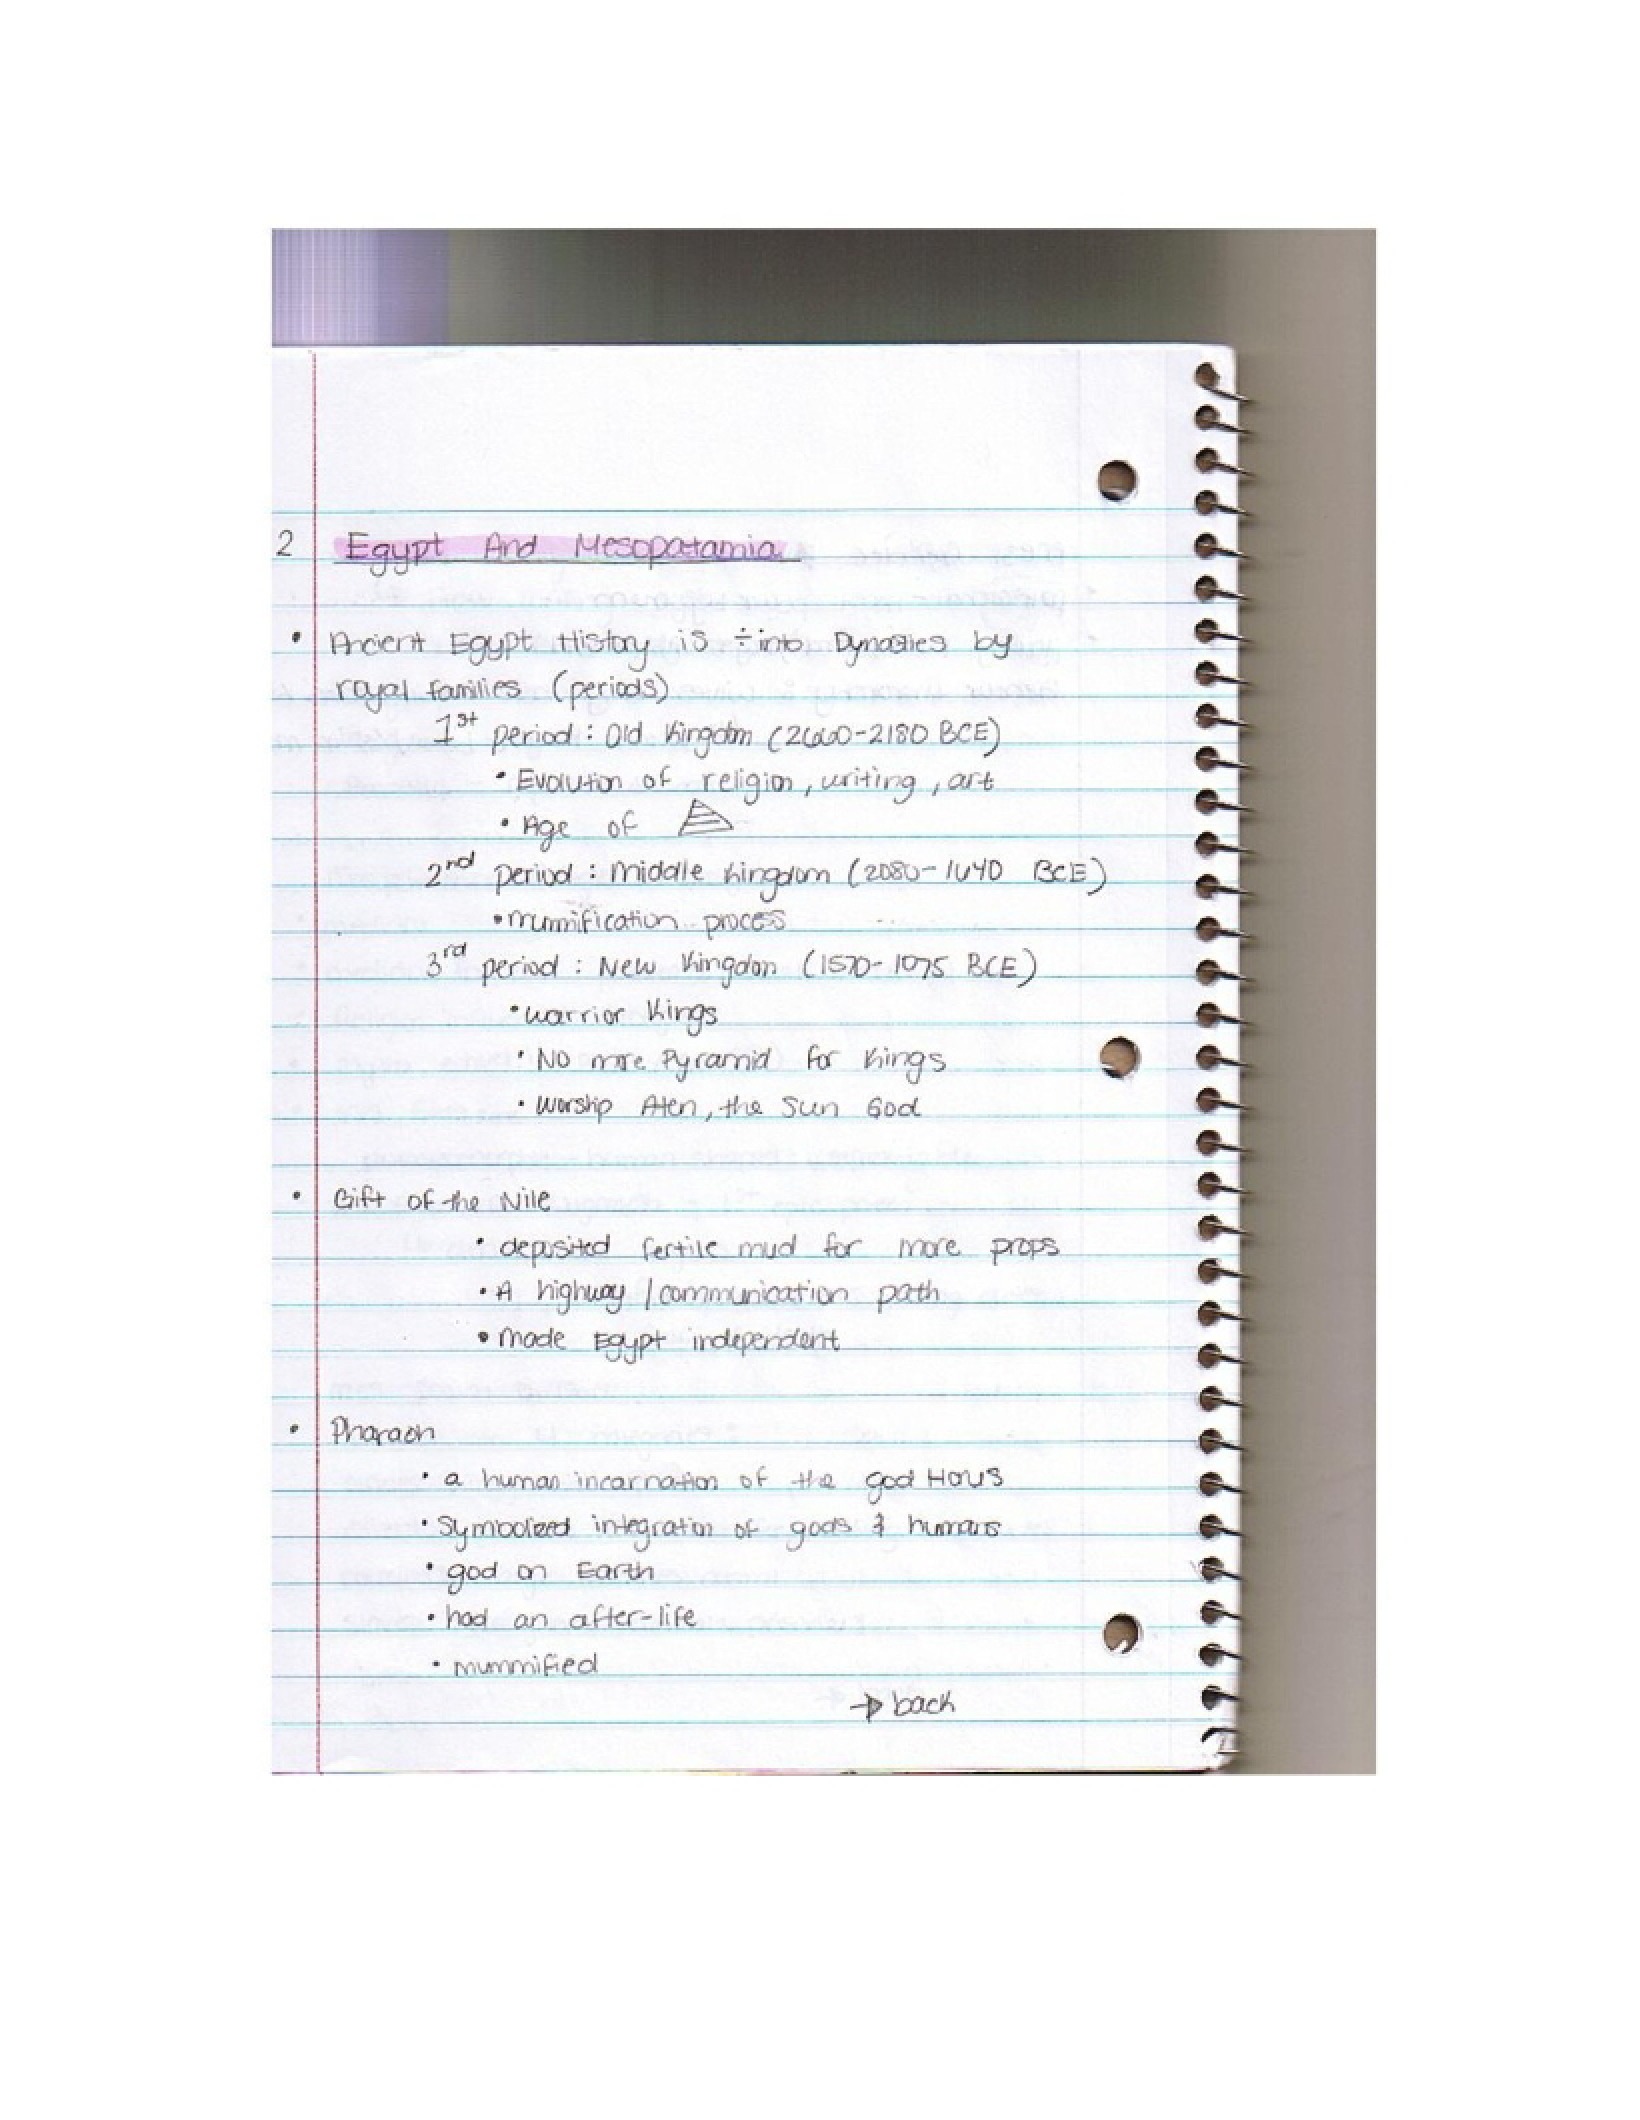 2 Egypt And Mesopatamia
• Ancient Egypt History is ÷ into Dynasties by
royal families (periods)
1st period : Old Kingdom (2660-2180 BCE)
• Evolution of religion, writing, art
• Age of
2nd period : Middle Kingdom (2080-1640 BCE)
• mummification process
3rd period : New Kingdom (1570-1075 BCE)
• warrior Kings
• No more Pyramid for Kings
• Worship Aten, the Sun God
• Gift of the Nile
• deposited fertile mud for more props
• A highway / communication path
• Made Egypt independent
• Pharaoh
• a human incarnation of the god Horus
• Symbolized integration of gods & humans
• god on Earth
• had an after-life
• mummified
→ back